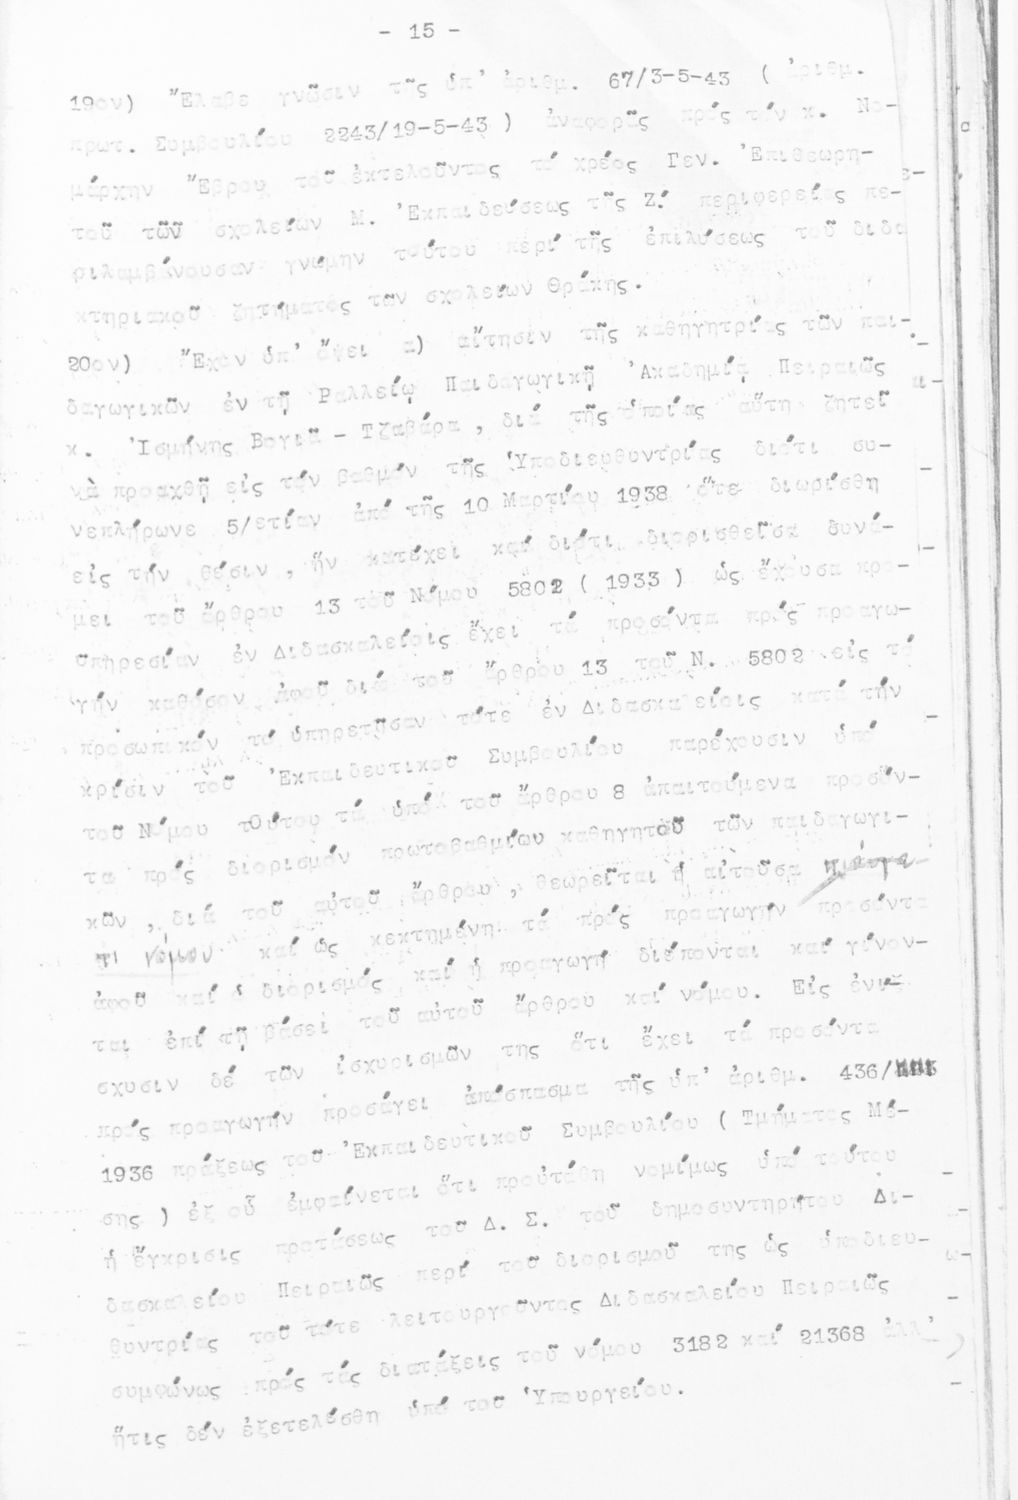 - 15 -
19ον) Ἔλαβε γνῶσιν τῆς ὑπ' ἀριθμ. 67/3-5-43 ( ἀριθμ.
πρωτ. Συμβουλίου 2243/19-5-43 ) ἀναφορᾶς πρός τόν κ. Νο-
μάρχην Ἔβρου τοῦ ἐκτελοῦντος τό χρέος Γεν. Ἐπιθεωρη-
τοῦ τῶν σχολείων Μ. Ἐκπαιδεύσεως τῆς Ζ! περιφερείας πε-
ριλαμβάνουσαν γνώμην τούτου περί τῆς ἐπιλύσεως τοῦ διδα
κτηριακοῦ ζητήματος τῶν σχολείων Θράκης.
20ον) Ἔχον ὑπ' ὄψει α) αἴτησιν τῆς καθηγητρίας τῶν παι-
δαγωγικῶν ἐν τῇ Ραλλείῳ Παιδαγωγικῇ Ἀκαδημίᾳ Πειραιῶς
κ. Ἰσμήνης Βογιᾶ - Τζαβάρα , διά τῆς ὁποίας αὕτη ζητεῖ
νὰ προαχθῇ εἰς τόν βαθμόν τῆς Ὑποδιευθυντρίας διότι συ-
νεπλήρωνε 5/ετίαν ἀπό τῆς 10 Μαρτίου 1938 ὅτε διωρίσθη
εἰς τήν θέσιν , ἥν κατέχει καί διότι διορισθεῖσα δυνά-
μει τοῦ ἄρθρου 13 τοῦ Νόμου 5802 ( 1933 ) ὡς ἔχουσα προ-
ϋπηρεσίαν ἐν Διδασκαλείοις ἔχει τά προσόντα πρός προαγω-
γήν καθόσον ἀφοῦ διά τοῦ ἄρθρου 13 τοῦ Ν. 5802 εἰς τό
προσωπικόν τό ὑπηρετῆσαν τότε ἐν Διδασκαλείοις κατά τήν
κρίσιν τοῦ Ἐκπαιδευτικοῦ Συμβουλίου παρέχουσιν ὑπό
τοῦ Νόμου τΟύτου τά ὑπό τοῦ ἄρθρου 8 ἀπαιτούμενα προσόν-
τα πρός διορισμόν πρωτοβαθμίου καθηγητοῦ τῶν παιδαγωγι-
κῶν , διά τοῦ αὐτοῦ ἄρθρου , θεωρεῖται ἡ αἰτοῦσα
νόμου καί ὡς κεκτημένη τά πρός προαγωγήν προσόντα
ἀφοῦ καί ὁ διορισμός καί ἡ προαγωγή διέπονται καί γίνον-
ται ἐπί τῇ βάσει τοῦ αὐτοῦ ἄρθρου καί νόμου. Εἰς ἐνί-
σχυσιν δέ τῶν ἰσχυρισμῶν της ὅτι ἔχει τά προσόντα
πρός προαγωγήν προσάγει ἀπόσπασμα τῆς ὑπ' ἀριθμ. 436/
1936 πράξεως τοῦ Ἐκπαιδευτικοῦ Συμβουλίου ( Τμήματος Μέ-
σης ) ἐξ οὗ ἐμφαίνεται ὅτι προὐτάθη νομίμως ὑπό τούτου
ἡ ἔγκρισις προτάσεως τοῦ Δ. Σ. τοῦ δημοσυντηρήτου Δι-
δασκαλείου Πειραιῶς περί τοῦ διορισμοῦ της ὡς ὑποδιευ-
θυντρίας τοῦ τότε λειτουργοῦντος Διδασκαλείου Πειραιῶς
συμφώνως πρός τάς διατάξεις τοῦ νόμου 3182 καί 21368 ἀλλ'
ἥτις δέν ἐξετελέσθη ὑπό τοῦ Ὑπουργείου.